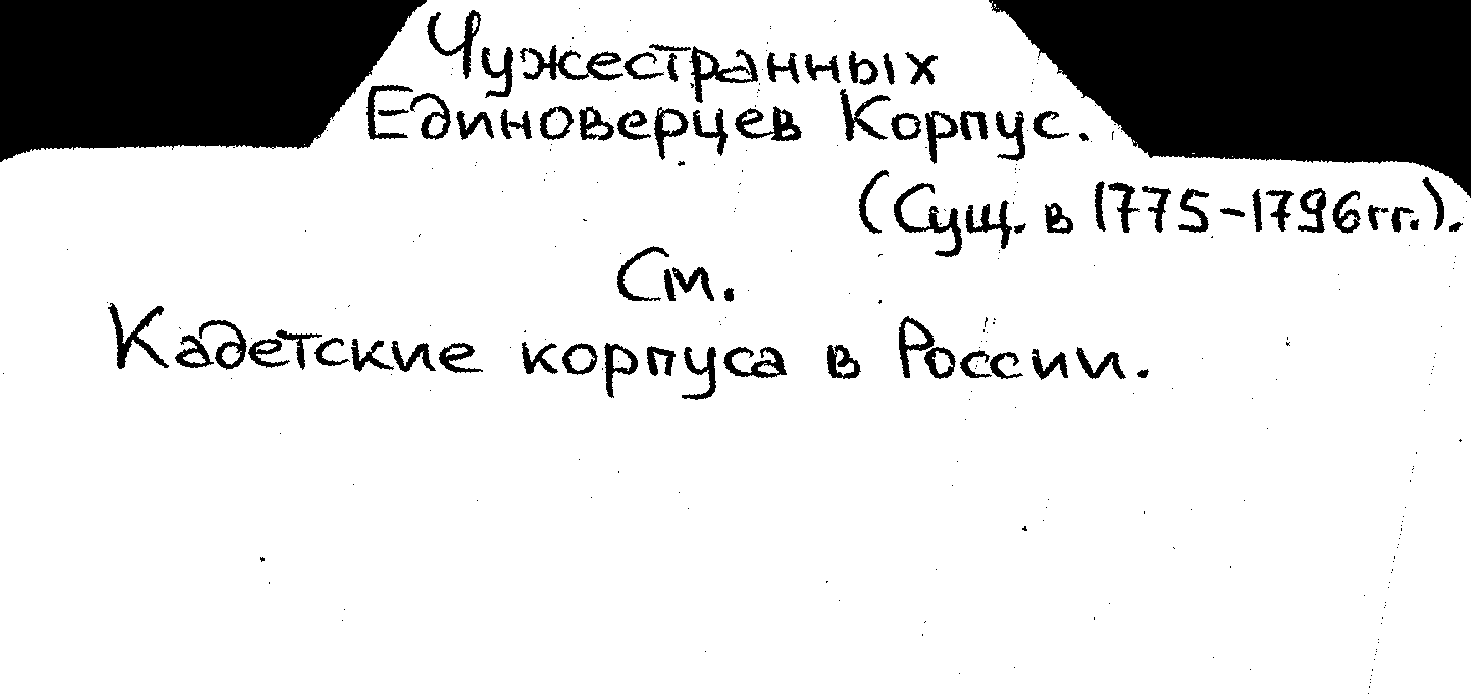 Чужестранных
Единоверцев Корпус.
(Сущ. в 1775-1796гг.).
См.
Кадетские корпуса в России.